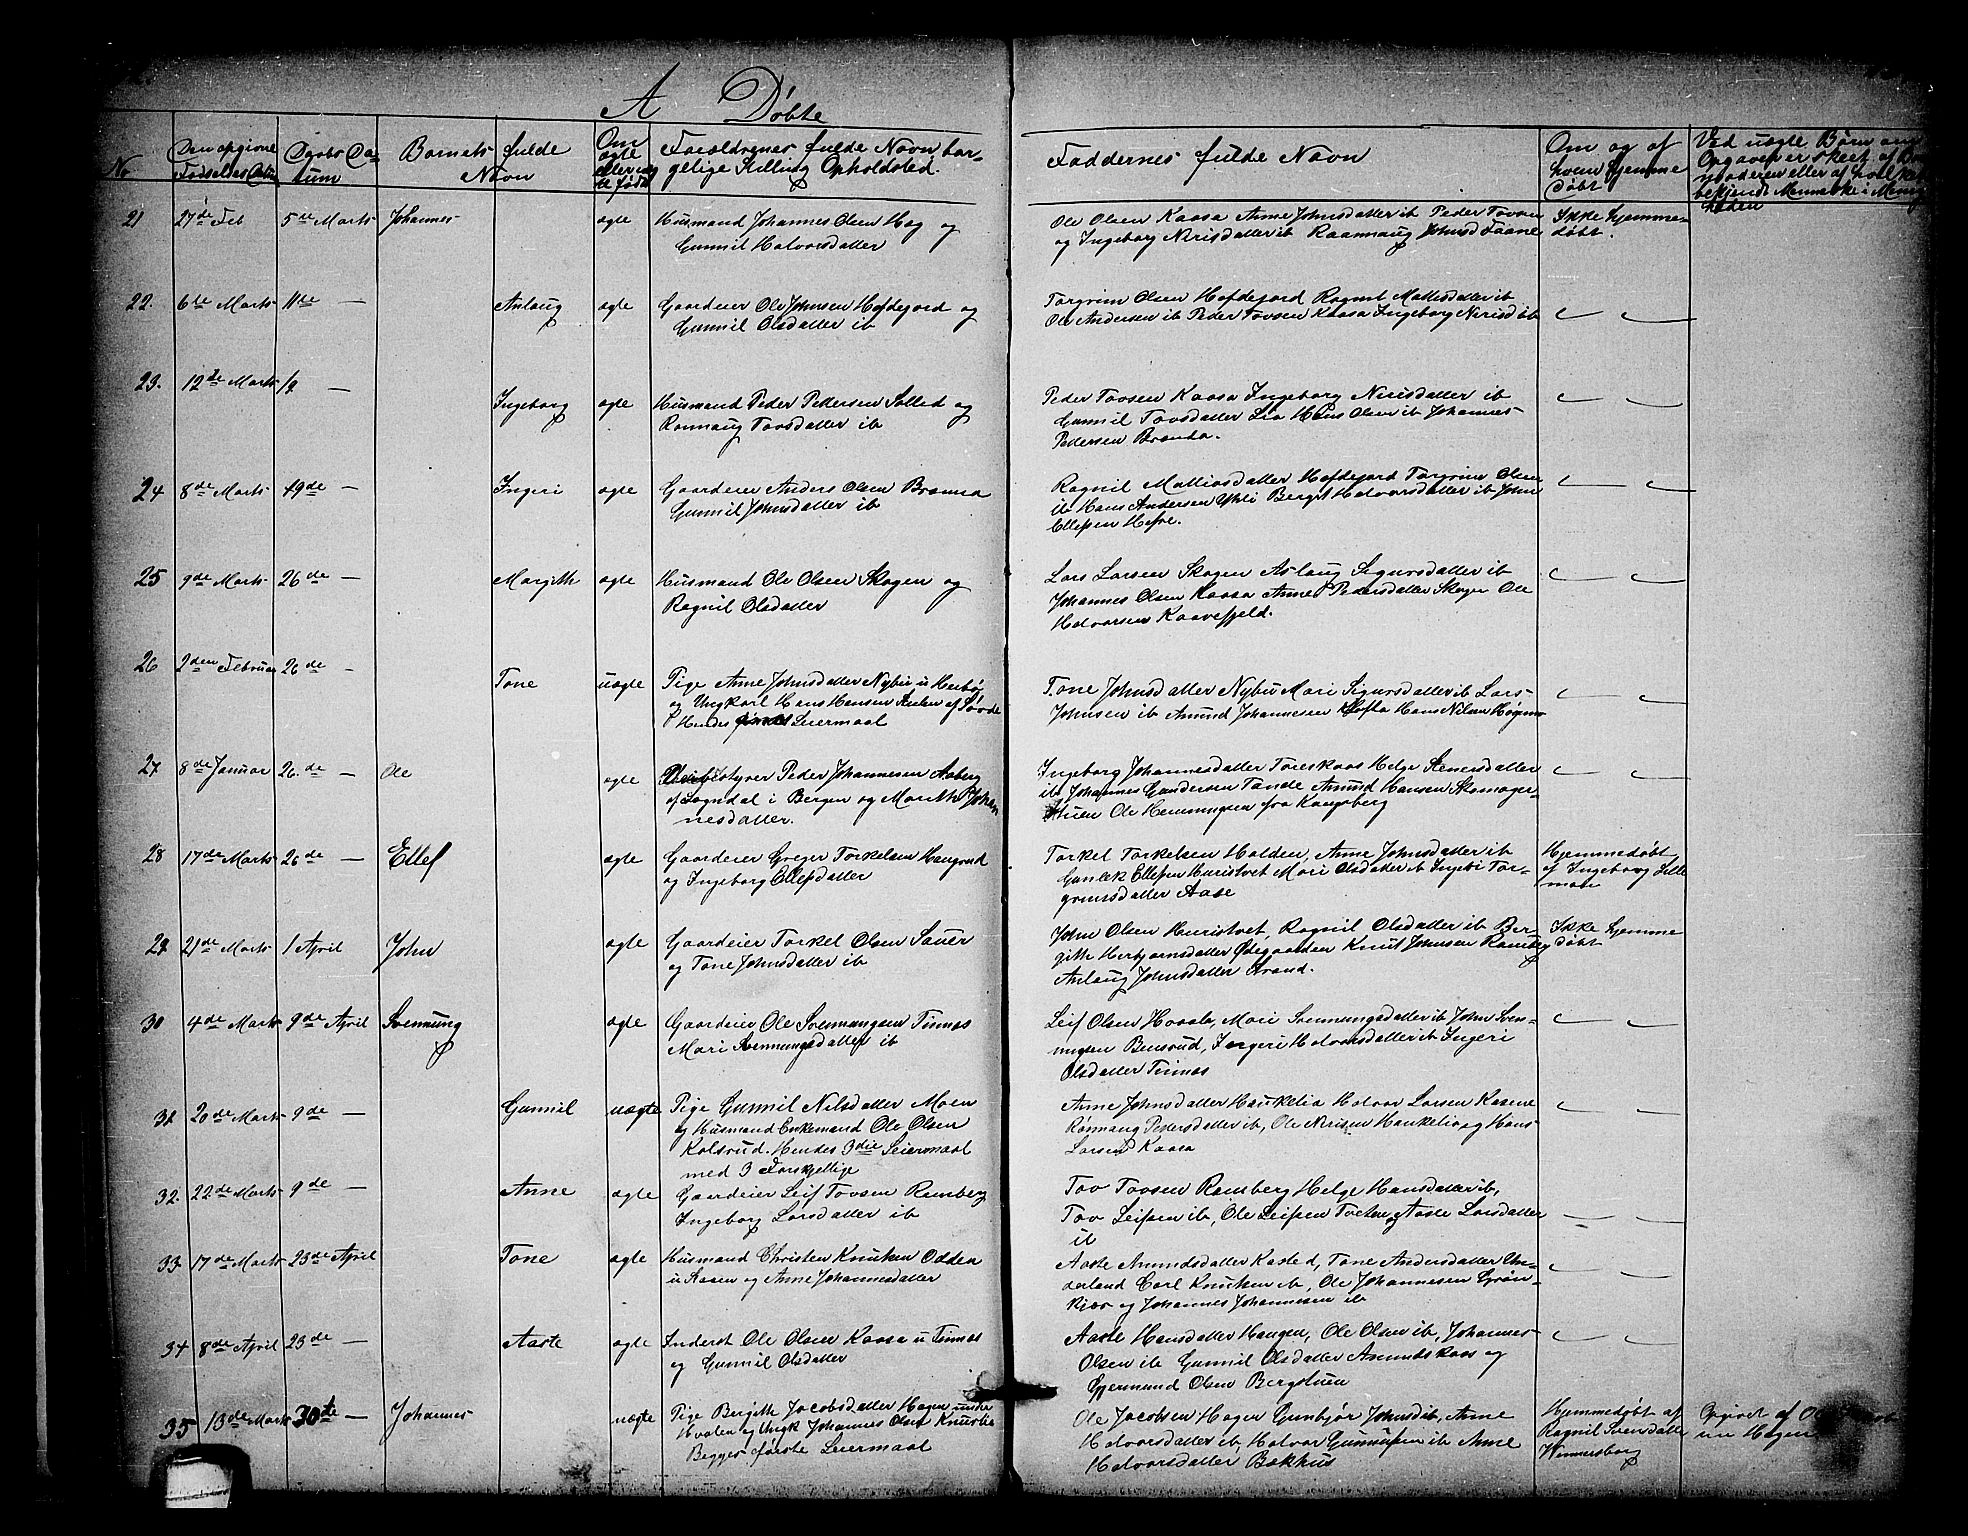 A Døbte
No
Den opgivne
Fødselsdatum
Daabs Da-
tum
Barnets fulde
Navn
Om
ægte
eller uæg
te født
Forældrenes fulde Navn bor-
gelige Stilling Opholdsted.
Faddernes fulde Navn
Om og af
hvem hjemme
døbt
Ved uægte Børn om
Opgaven er skeet af
moderen eller af
bekjendt Menneske i Menig
heden
21 27de Feb 5te Marts Johannes ægte Husmand Johannes Olsen Hag og
Gunnil Halvorsdatter
Ole Olsen Kaasa Anne Johnsdatter ib Peder Tovsen
og Ingeborg Nirisdatter ib Raannaug Johnsd Faane
Ikke hjemme-
døbt.
22. 6te Marts 11te — Aslaug ægte Gaardeier Ole Johnsen Hofdejord og
Gunnil Olsdatter ib
Torgrim Olsen Hofdejord Ragnil Mattisdatter ib
Ole Andersen ib Peder Tovsen Kaasa Ingeborg Nirisd ib
23. 12te Marts 12 — Ingeborg ægte Husmand Peder Pedersen Solled og
Rannaug Tovsdatter ib
Peder Tovsen Kaasa Ingeborg Nirisdatter ib
Gunnil Tovsdatter Lia Hans Olsen ib Johannes
Pedersen Brenta.
24 8de Marts 19de — Ingeri ægte Gaardeier Anders Olsen Bramsa
Gunnil Johnsdatter ib
Ragnil Mattiasdatter Hofdejord Torgrim Olsen
ib Hans Andersen Ytli Bergit Halvorsdatter ib John
Ellefsen Hefre.
25 9de Marts 26de — Margith ægte Husmand Ole Olsen Skogen og
Ragnil Olsdatter
Lars Larsen Skogen Aslaug Sigursdatter ib
Johannes Olsen Kaasa Anne Pedersdatter Skogen Ole
Halvorsen Kaavefjeld.
26 2den Februar 26de — Tone uægte Pige Anne Johnsdatter Nybu u Herbø
og Ungkarl Hans Hansen af Søvde
Hendes Leiermaal
Tone Johnsdatter Nybu Mari Sigursdatter ib Lars
Johnsen ib Amund Johannesen Hans Nilsen
27 8de Januar 26.de — Ole ægte Peder Johannesen Aaberg
af Sogndal i Bergen og Marith Johan
nesdatter.
Ingeborg Johannesdatter Toreskaas Helge Stenersdatter
ib Johannes Gundersen Tande Amund Hansen Skomager-
stuen Ole Hemmingsen fra Kongsberg
28 17de Marts 26de — Ellef ægte Gaardeier Greger Torkelsen Haugrud
og Ingeborg Ellefsdatter
Torkel Torkelsen Holden, Anne Johnsdatter ib
Gunlek Ellefsen Huristvet Mari Olsdatter ib Ingebi Tor-
grimsdatter Aase
Hjemmedøbt
af Ingeborg Lille
moen
29. 21de Marts 1 April John ægte Gaardeier Torkel Olsen Sauer
og Tone Johnsdatter ib
John Olsen Huristvet, Ragnil Olsdatter ib Ber-
gith Herbjørnsdatter Ødegaarden Knut Johnsen Ramberg
Aslaug Johnsdatter Strand.
Ikke hjemme
døbt
30 4de Marts 9de April Svennung ægte Gaardeier Ole Svennungsen Tinnes
Mari Svennungsdatter ib
Leif Olsen Haasle, Mari Svennungsdatter ib John Sven-
nungsen Bensrud, Ingeri Halvorsdatter ib Ingeri
Olsdatter Tinnes
31 20de Marts 9de — Gunnil uægte Pige Gunnil Nilsdatter Moen
og Husmand Enkemand Ole Olsen
Kolsrud. Hendes 3die Leiermaal
med 3 Forskjellige
Anne Johnsdatter Haukelia Halvor Larsen Kasene
Rønnaug Pedersdatter ib, Ole Nirisen Haukelia og Hans
Larsen Kaasa
32. 22de Marts 9de — Anne ægte Gaardeier Leif Tovsen Ramberg
Ingeborg Larsdatter ib
Tov Tovsen Ramberg Helge Hansdatter ib,
Tov Leifsen ib, Ole Leifsen Tveten og Aaste Larsdatter
ib
33. 17de Marts 23de April Tone ægte Husmand Christen Knutsen Odden
u Kasen og Anne Johannesdatter
Aaste Amundsdatter Kasted, Tone Andersdatter Un-
derland Carl Knutsen ib, Ole Johannesen Grøn-
kjær og Johannes Johannesen ib
34 8de April 23de — Aaste ægte Inderst Ole Olsen Kaasa u Tinnes
og Gunnil Olsdatter
Aaste Hansdatter Haugen, Ole Olsen ib, Johannes
Olsen ib Gunnil Olsdatter Amundskaas og
Gjermund Olsen Bergstuen
35 13de Marts 30te — Johannes uægte Pige Bergith Jacobsdatter Hagen under
Hvalen og Ungk Johannes Olsen Knutslie
Begges første Leiermaal
Ole Jacobsen Hagen Gunbjør Johnsd ib, Anne
Halvorsdatter ib, Halvor Gunnufsen ib Anne
Halvorsdatter Bakhus
Hjemmedøbt af
Ragnil Svendsdatter
Winnersborg
Opgivet af Ole Jacob
sen Hagen